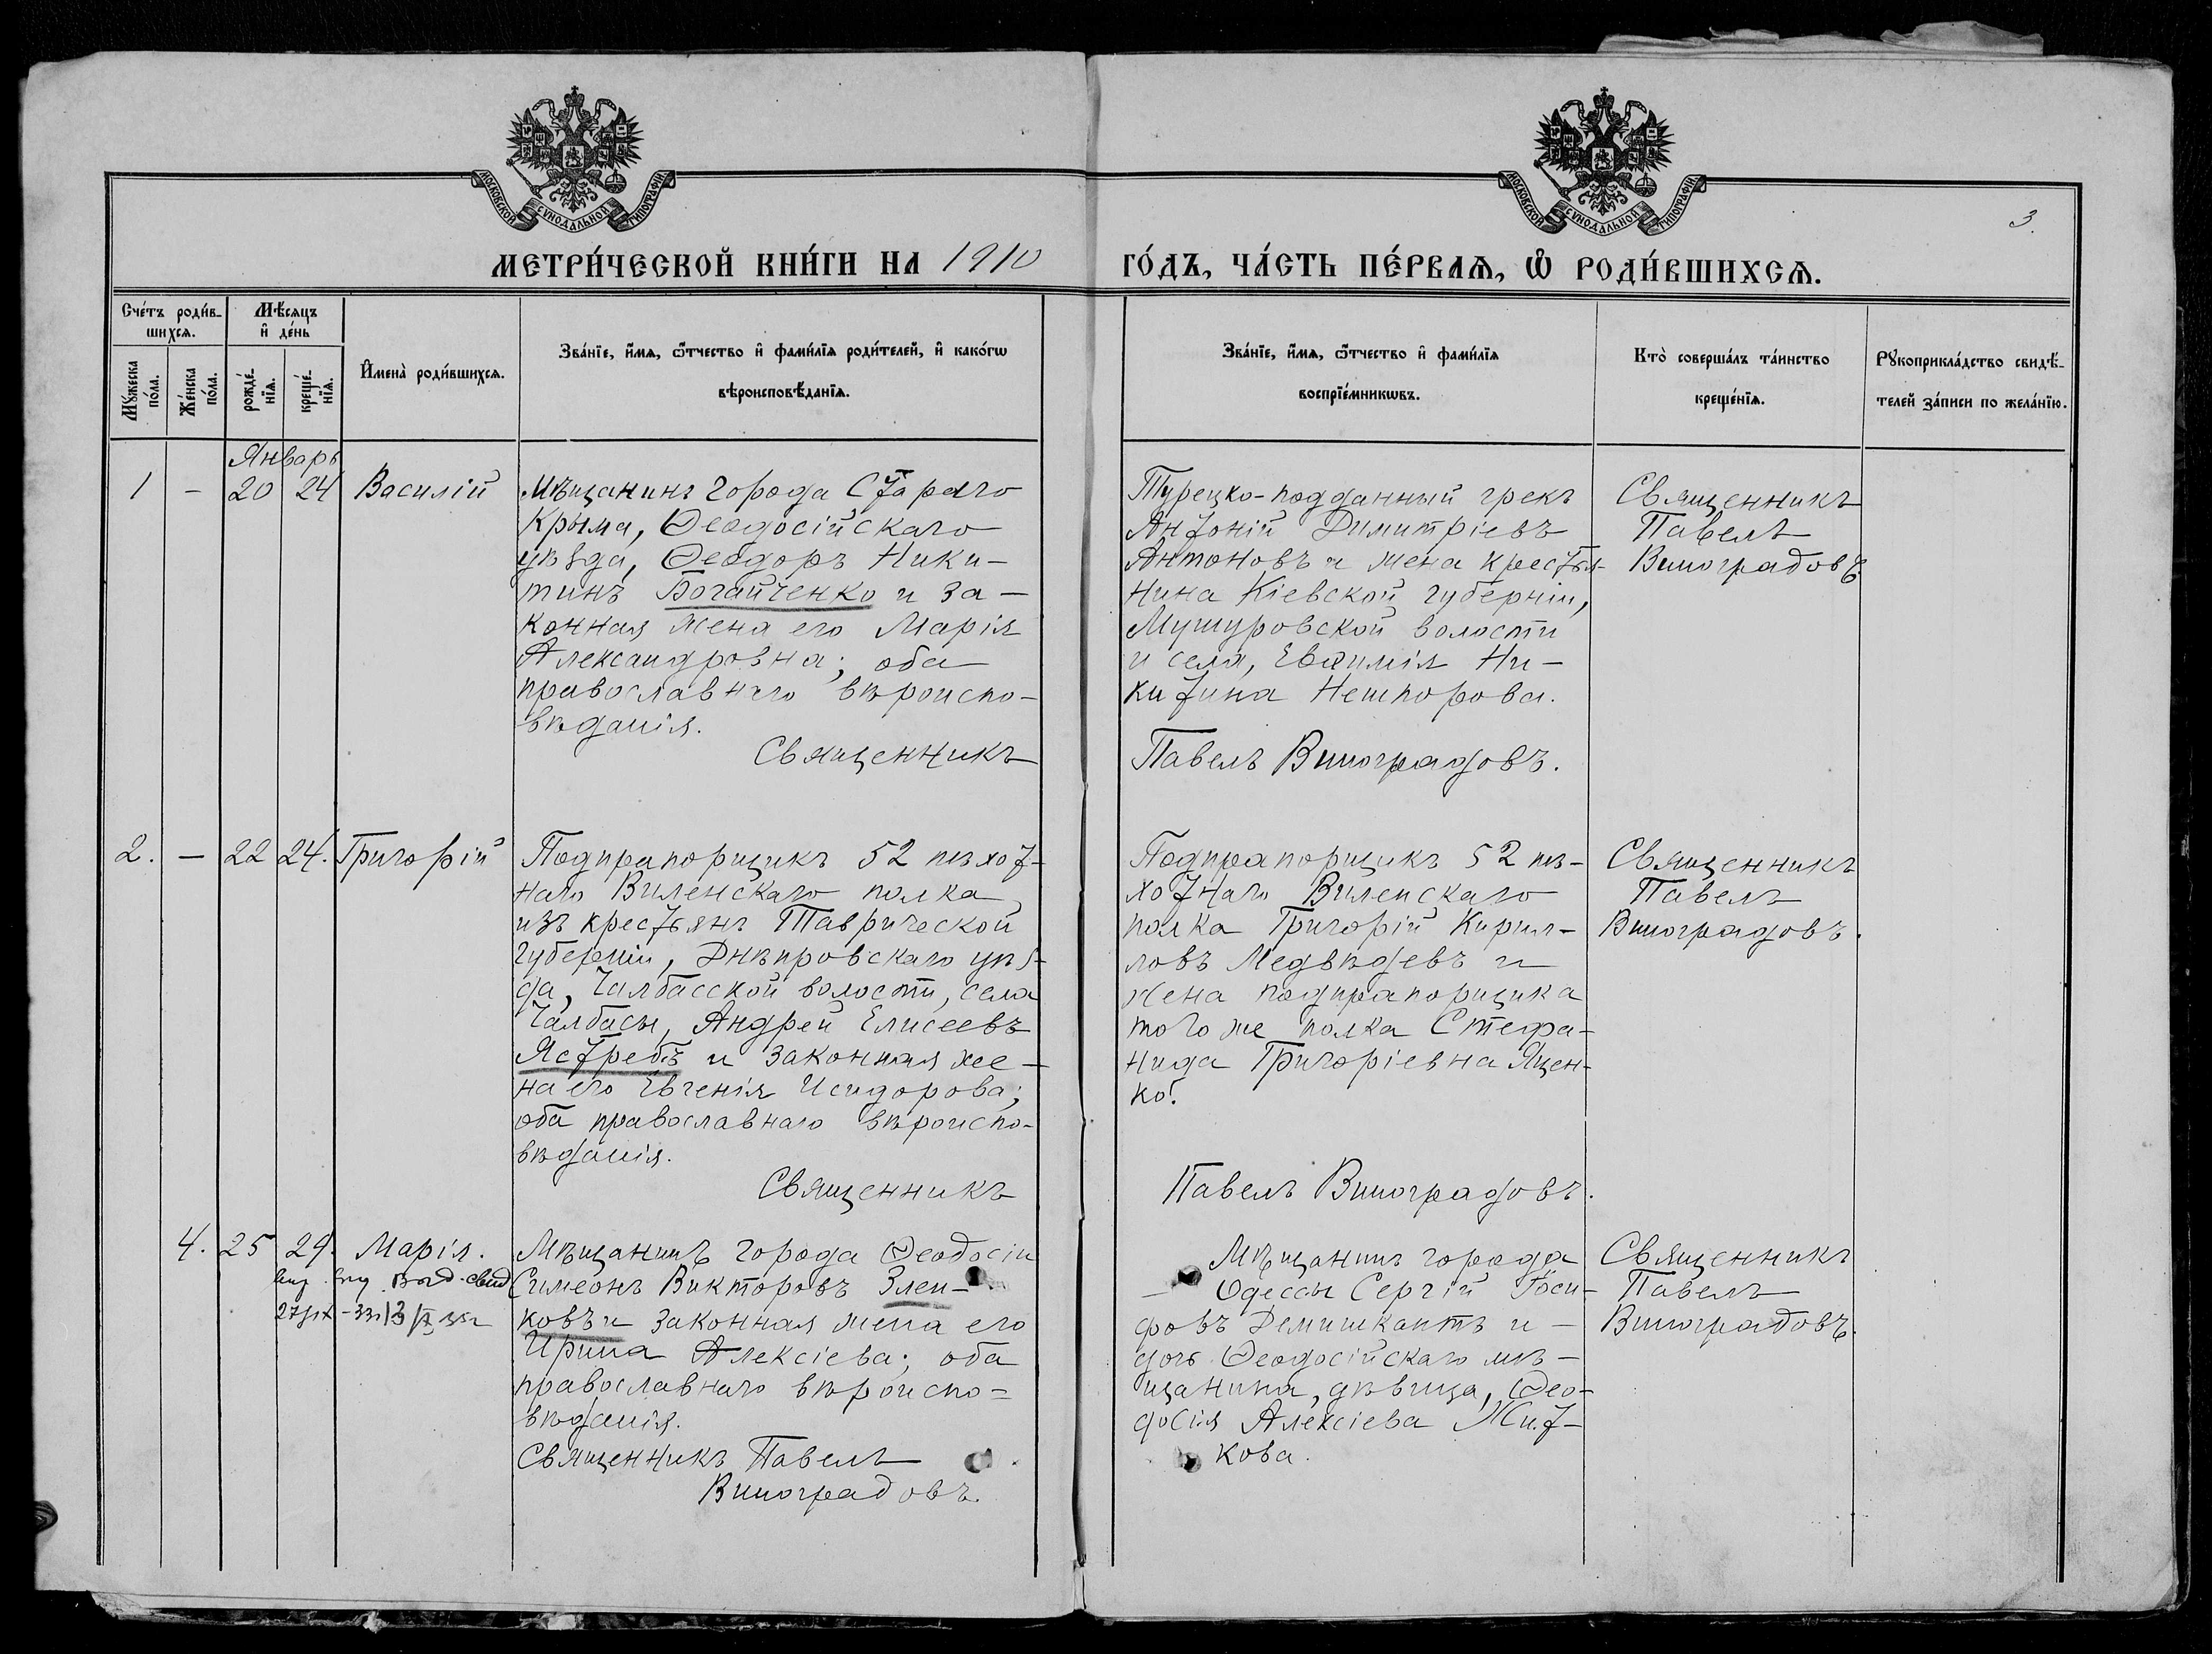 МОСКОВСКОЙ СУНОДАЛЬНОЙ ТИПОГРАФІИ.
МОСКОВСКОЙ СУНОДАЛЬНОЙ ТИПОГРАФІИ.
3.
МЕТРИ́ЧЕСКОЙ КНИ́ГИ НА 1910 ГО́ДЪ, ЧА́СТЬ ПЕ́РВАѦ, Ѡ҆ РОДИ́ВШИХСѦ.
Сче́тъ роди́в-
шихсѧ.
Мѣ́сѧцъ
и҆ де́нь
Мꙋ́жеска
по́ла.
Же́нска
по́ла.
рожде́-
нїѧ.
креще́-
нїѧ.
И҆мена̀ роди́вшихсѧ.
Зва́нїе, и҆́мѧ, ѻ҆́тчество и҆ фами́лїѧ роди́телей, и҆ како́гѡ
вѣроисповѣ́данїѧ.
Зва́нїе, и҆́мѧ, ѻ҆́тчество и҆ фами́лїѧ
воспрїе́мникѡвъ.
Кто̀ соверша́лъ та́инство
креще́нїѧ.
Рꙋкоприкла́дство свидѣ́-
телей за́писи по жела́нїю.
Январь
1 - 20 24 Василій
Мѣщанинъ города Стараго
Крыма, Ѳеодосійскаго
уѣзда, Ѳеодоръ Ники-
тинъ Богайченко и за-
конная жена его Марія
Александровна; оба
православнаго вѣроиспо-
вѣданія.
Священникъ
Турецко-подданный грекъ
Антоній Димитріевъ
Антоновъ и жена крестья-
нина Кіевской губерніи,
Мушуровской волости
и села, Евѳимія Ни-
китина Нешпорова.
Павелъ Виноградовъ.
Священникъ
Павелъ
Виноградовъ
2. - 22 24. Григорій
Подпрапорщикъ 52 пѣхот-
наго Виленскаго полка,
изъ крестьянъ Таврической
губерніи, Днѣпровскаго уѣз-
да, Чалбасской волости, села
Чалбасы, Андрей Елисеевъ
Ястребъ и законная же-
на его Евгенія Исидорова;
оба православнаго вѣроиспо-
вѣданія.
Священникъ
Подпрапорщикъ 52 пѣ-
хотнаго Виленскаго
полка Григорій Кирил-
ловъ Медвѣдевъ и
жена подпрапорщика
того же полка Стефа-
нида Григоріевна Яцен-
ко.
Павелъ Виноградовъ.
Священникъ
Павелъ
Виноградовъ.
4. 25 29. Марія.
Мѣщанинъ города Ѳеодосіи
Симеонъ Викторовъ Злен-
ковъ и законная жена его
Ирина Алексіева; оба
православнаго вѣроиспо-
вѣданія.
Священникъ Павелъ
Виноградовъ.
Мѣщанинъ города
Одессы Сергій Іоси-
фовъ Демишкантъ и
дочь Ѳеодосійскаго мѣ-
щанина, дѣвица, Ѳео-
досія Алексіева Жит-
кова.
Священникъ
Павелъ
Виноградовъ.